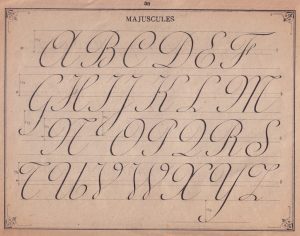 MAJUSCULES
A B C D E F
G H I J K L M
N O P Q R S
T U V W X Y Z